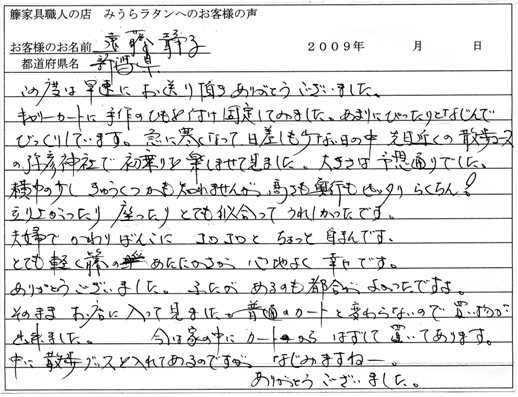 籐家具職人の店 みうらラタンへのお客様の声
お客様のお名前 遠藤 静子 2009年 月 日
都道府県名 新潟県
この度は早速に お送り頂き ありがとうございました。
キャリーカートに 手作のひもを付け 固定してみました。あまりにぴったりとなじんで
びっくりしています。急に寒くなって 日差しも少ない日の中 先日近くの散歩コース
の弥彦神社で 初乗りを楽しませて見ました。大きさは予想通りでした。
横巾の少し きゅうくつかも知れませんが、高さも奥行も ピッタリ らくちん!
立り上がったり 座ったり とても似合って うれしかったです。
夫婦で かわりばんこに コロコロと ちょっと 自まんです。
とても軽く 籐の あたたかさが 心地よく 幸せです。
ありがとうございました。ふたが あるのも都合が よかったですよ。
そのまま お店に入って見ました。普通のカートと変わらないので 買い物が
出来ました。 今は家の中に カートから はずして 置いてあります。
中に 散歩グッズを入れてあるのですが なじみますねー。
ありがとう ございました。